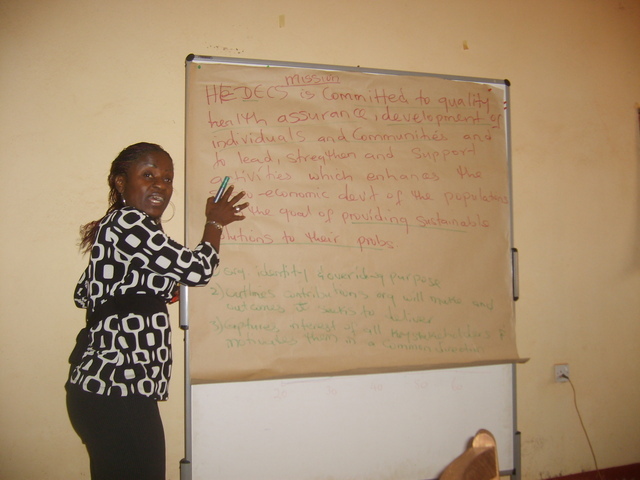 mission
HEDECS is Committed to quality
health assurance, development of
individuals and Communities and
to lead, strengthen and support
activities which enhances the
-economic devt of the populations
the goal of providing sustainable
solutions to their probs.
identity & overriding purpose
2) Outlines contributions org will make and
outcomes it seeks to deliver
3) Captures interest of all key stakeholders &
motivates them in a